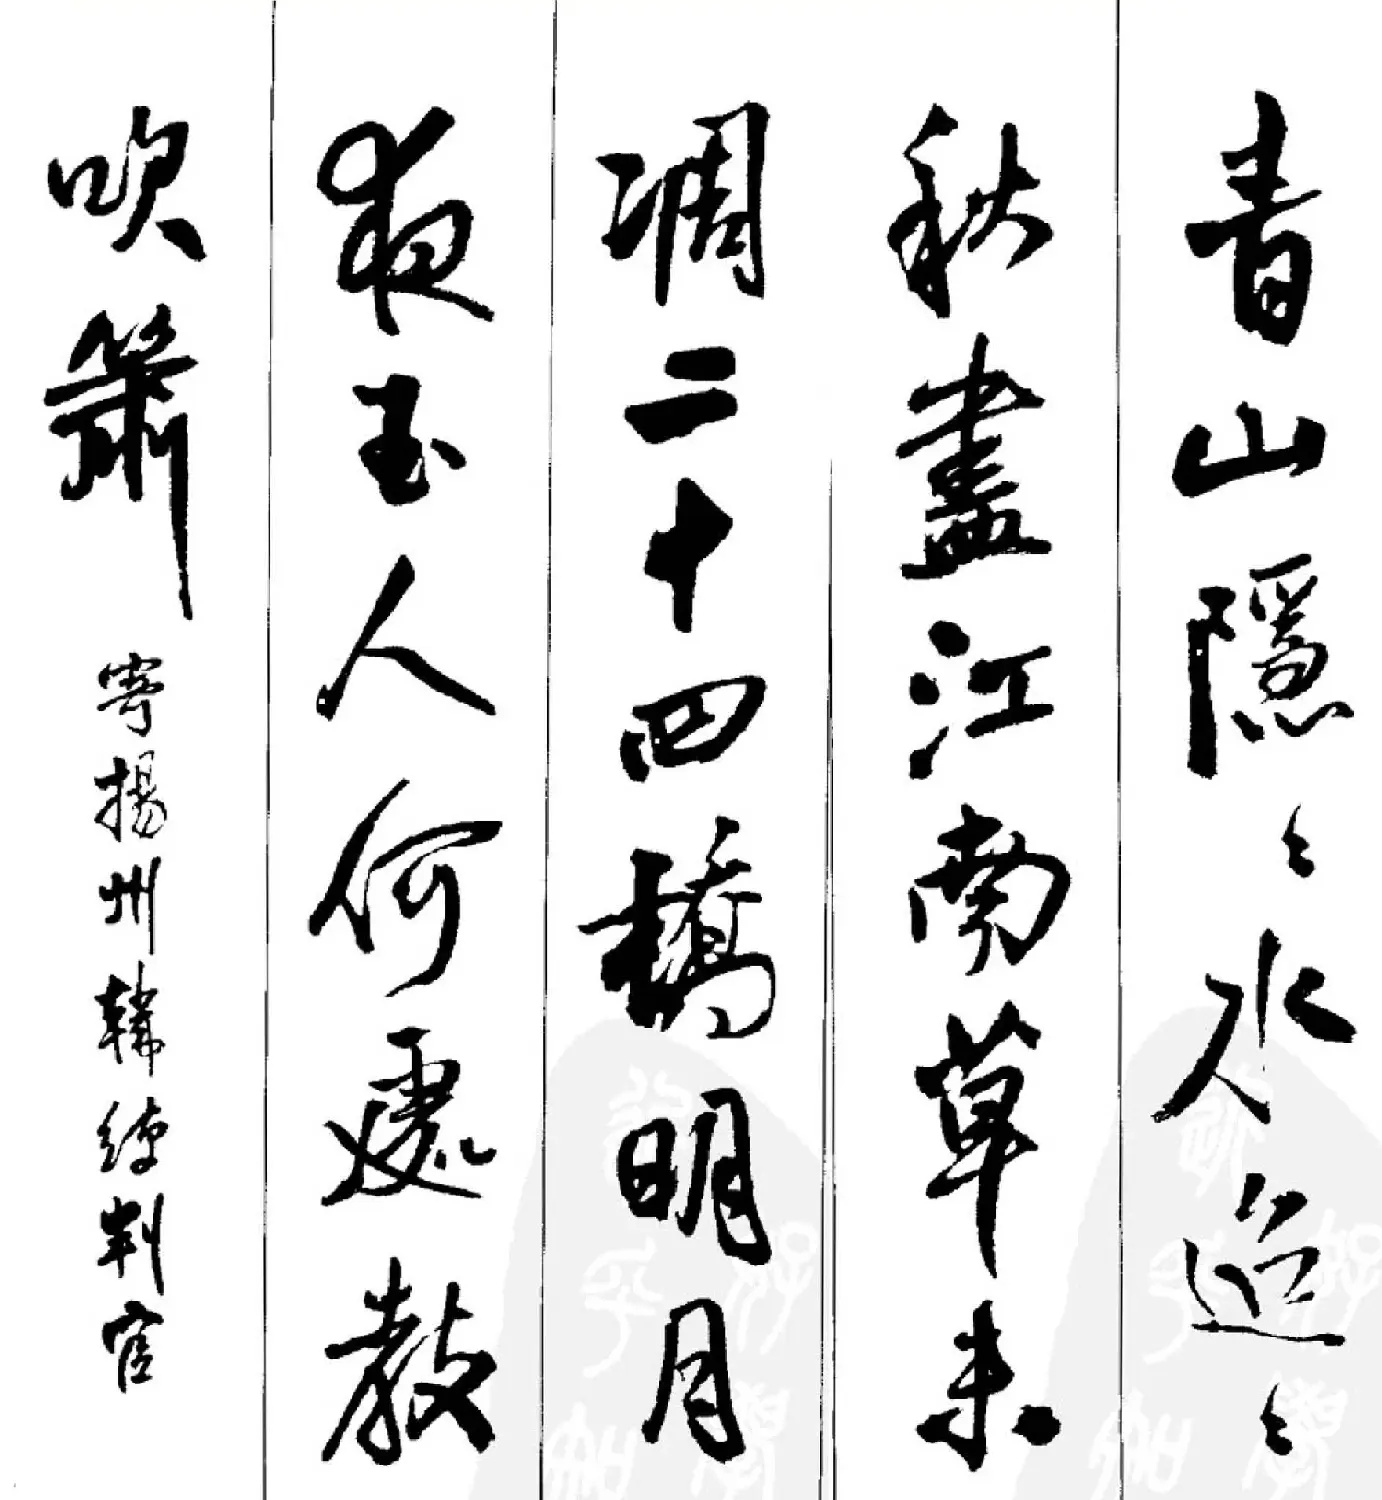 青山隱々水迢々
秋盡江南草未
凋二十四橋明月
夜玉人何處教
吹簫 寄揚州韓綽判官